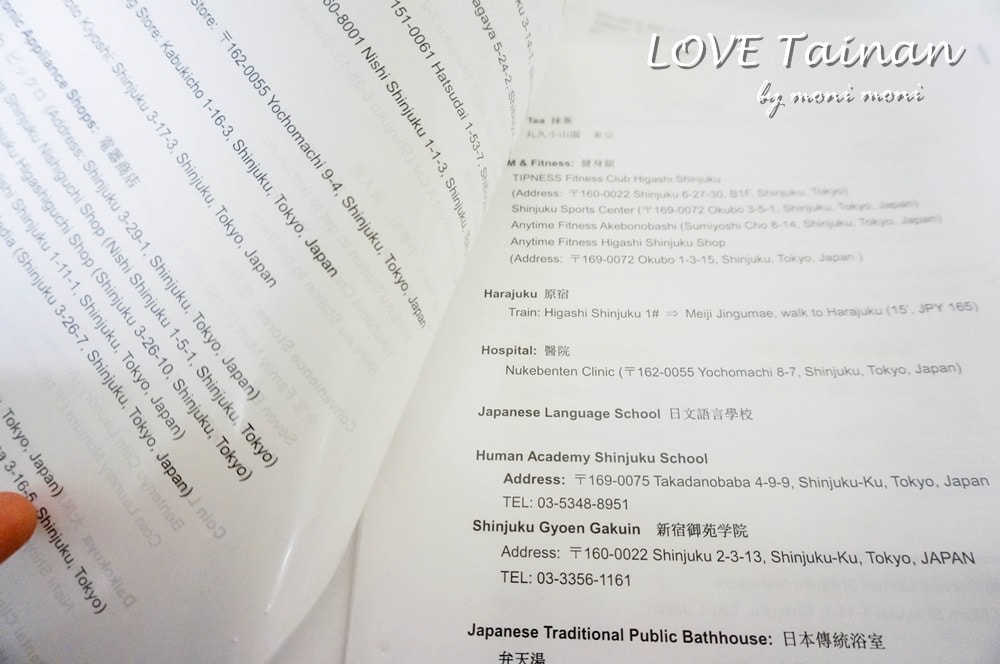 LOVE Tainan
by moni moni
Store: 〒162-0055 Yochomachi 9-4, Shinjuku, Tokyo, Japan
Store: Kabukicho 1-16-3, Shinjuku, Tokyo, Japan
Kiyoshi: Shinjuku 3-17-3, Shinjuku, Tokyo, Japan
Appliance Shops: 電器商店
ビックロ (Address: Shinjuku 3-29-1, Shinjuku, Tokyo, Japan)
Shinjuku Nishiguchi Shop (Nishi Shinjuku 1-5-1, Shinjuku, Tokyo)
Shinjuku Higashiguchi Shop (Shinjuku 3-26-10, Shinjuku, Tokyo)
Shinjuku 1-11-1, Shinjuku, Tokyo, Japan)
(Shinjuku 3-26-7, Shinjuku, Tokyo, Japan)
Tokyo, Japan)
3-16-5, Shinjuku, Tokyo)
160-8001 Nishi Shinjuku 1-1-3, Shinjuku,
151-0061 Hatsudai 1-53-7,
5-24-2,
3-14-1,
Tea 抹茶
丸久小山園 東京
M & Fitness: 健身館
TIPNESS Fitness Club Higashi Shinjuku
(Address: 〒160-0022 Shinjuku 6-27-30, B1F, Shinjuku, Tokyo)
Shinjuku Sports Center (〒169-0072 Okubo 3-5-1, Shinjuku, Tokyo, Japan)
Anytime Fitness Akebonobashi (Sumiyoshi Cho 8-14, Shinjuku, Tokyo, Japan)
Anytime Fitness Higashi Shinjuku Shop
(Address: 〒169-0072 Okubo 1-3-15, Shinjuku, Tokyo, Japan )
Harajuku 原宿
Train: Higashi Shinjuku 1# ⇒ Meiji Jingumae, walk to Harajuku (15', JPY 165)
Hospital: 醫院
Nukebenten Clinic (〒162-0055 Yochomachi 8-7, Shinjuku, Tokyo, Japan)
Japanese Language School 日文語言學校
Human Academy Shinjuku School
Address: 〒169-0075 Takadanobaba 4-9-9, Shinjuku-Ku, Tokyo, Japan
TEL: 03-5348-8951
Shinjuku Gyoen Gakuin 新宿御苑学院
Address: 〒160-0022 Shinjuku 2-3-13, Shinjuku-Ku, Tokyo, JAPAN
TEL: 03-3356-1161
Japanese Traditional Public Bathhouse: 日本傳統浴室
弁天湯